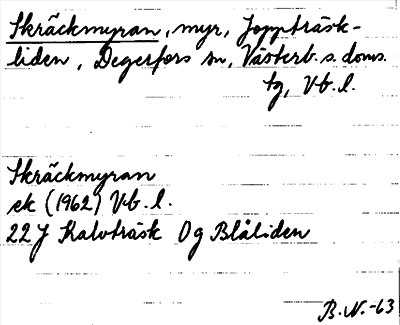 Skräckmyran, myr, Joppträsk-
liden, Degerfors sn, Västerb. s. doms.
tg, Vb. l.
Skräckmyran
ek (1962) Vb. l.
22 J Kalvträsk 0 g Blåliden
B. N. -63